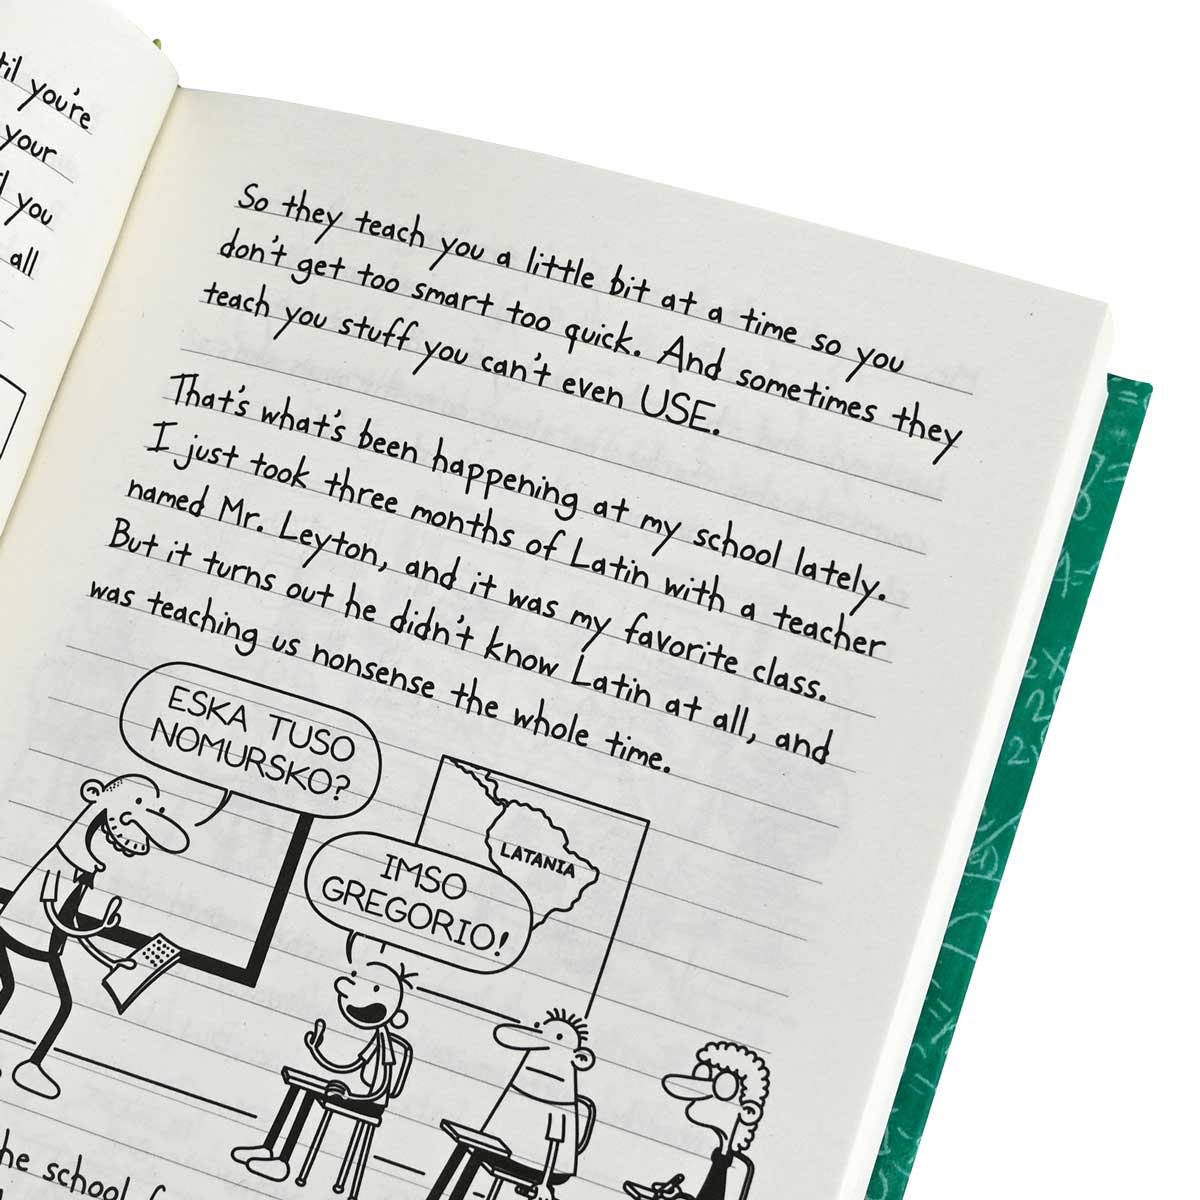 til you're
your
you
all
So they teach you a little bit at a time so you
don't get too smart too quick. And sometimes they
teach you stuff you can't even USE.
That's what's been happening at my school lately.
I just took three months of Latin with a teacher
named Mr. Leyton, and it was my favorite class.
But it turns out he didn't know Latin at all, and
was teaching us nonsense the whole time.
ESKA TUSO
NOMURSKO?
LATANIA
IMSO
GREGORIO!
he school